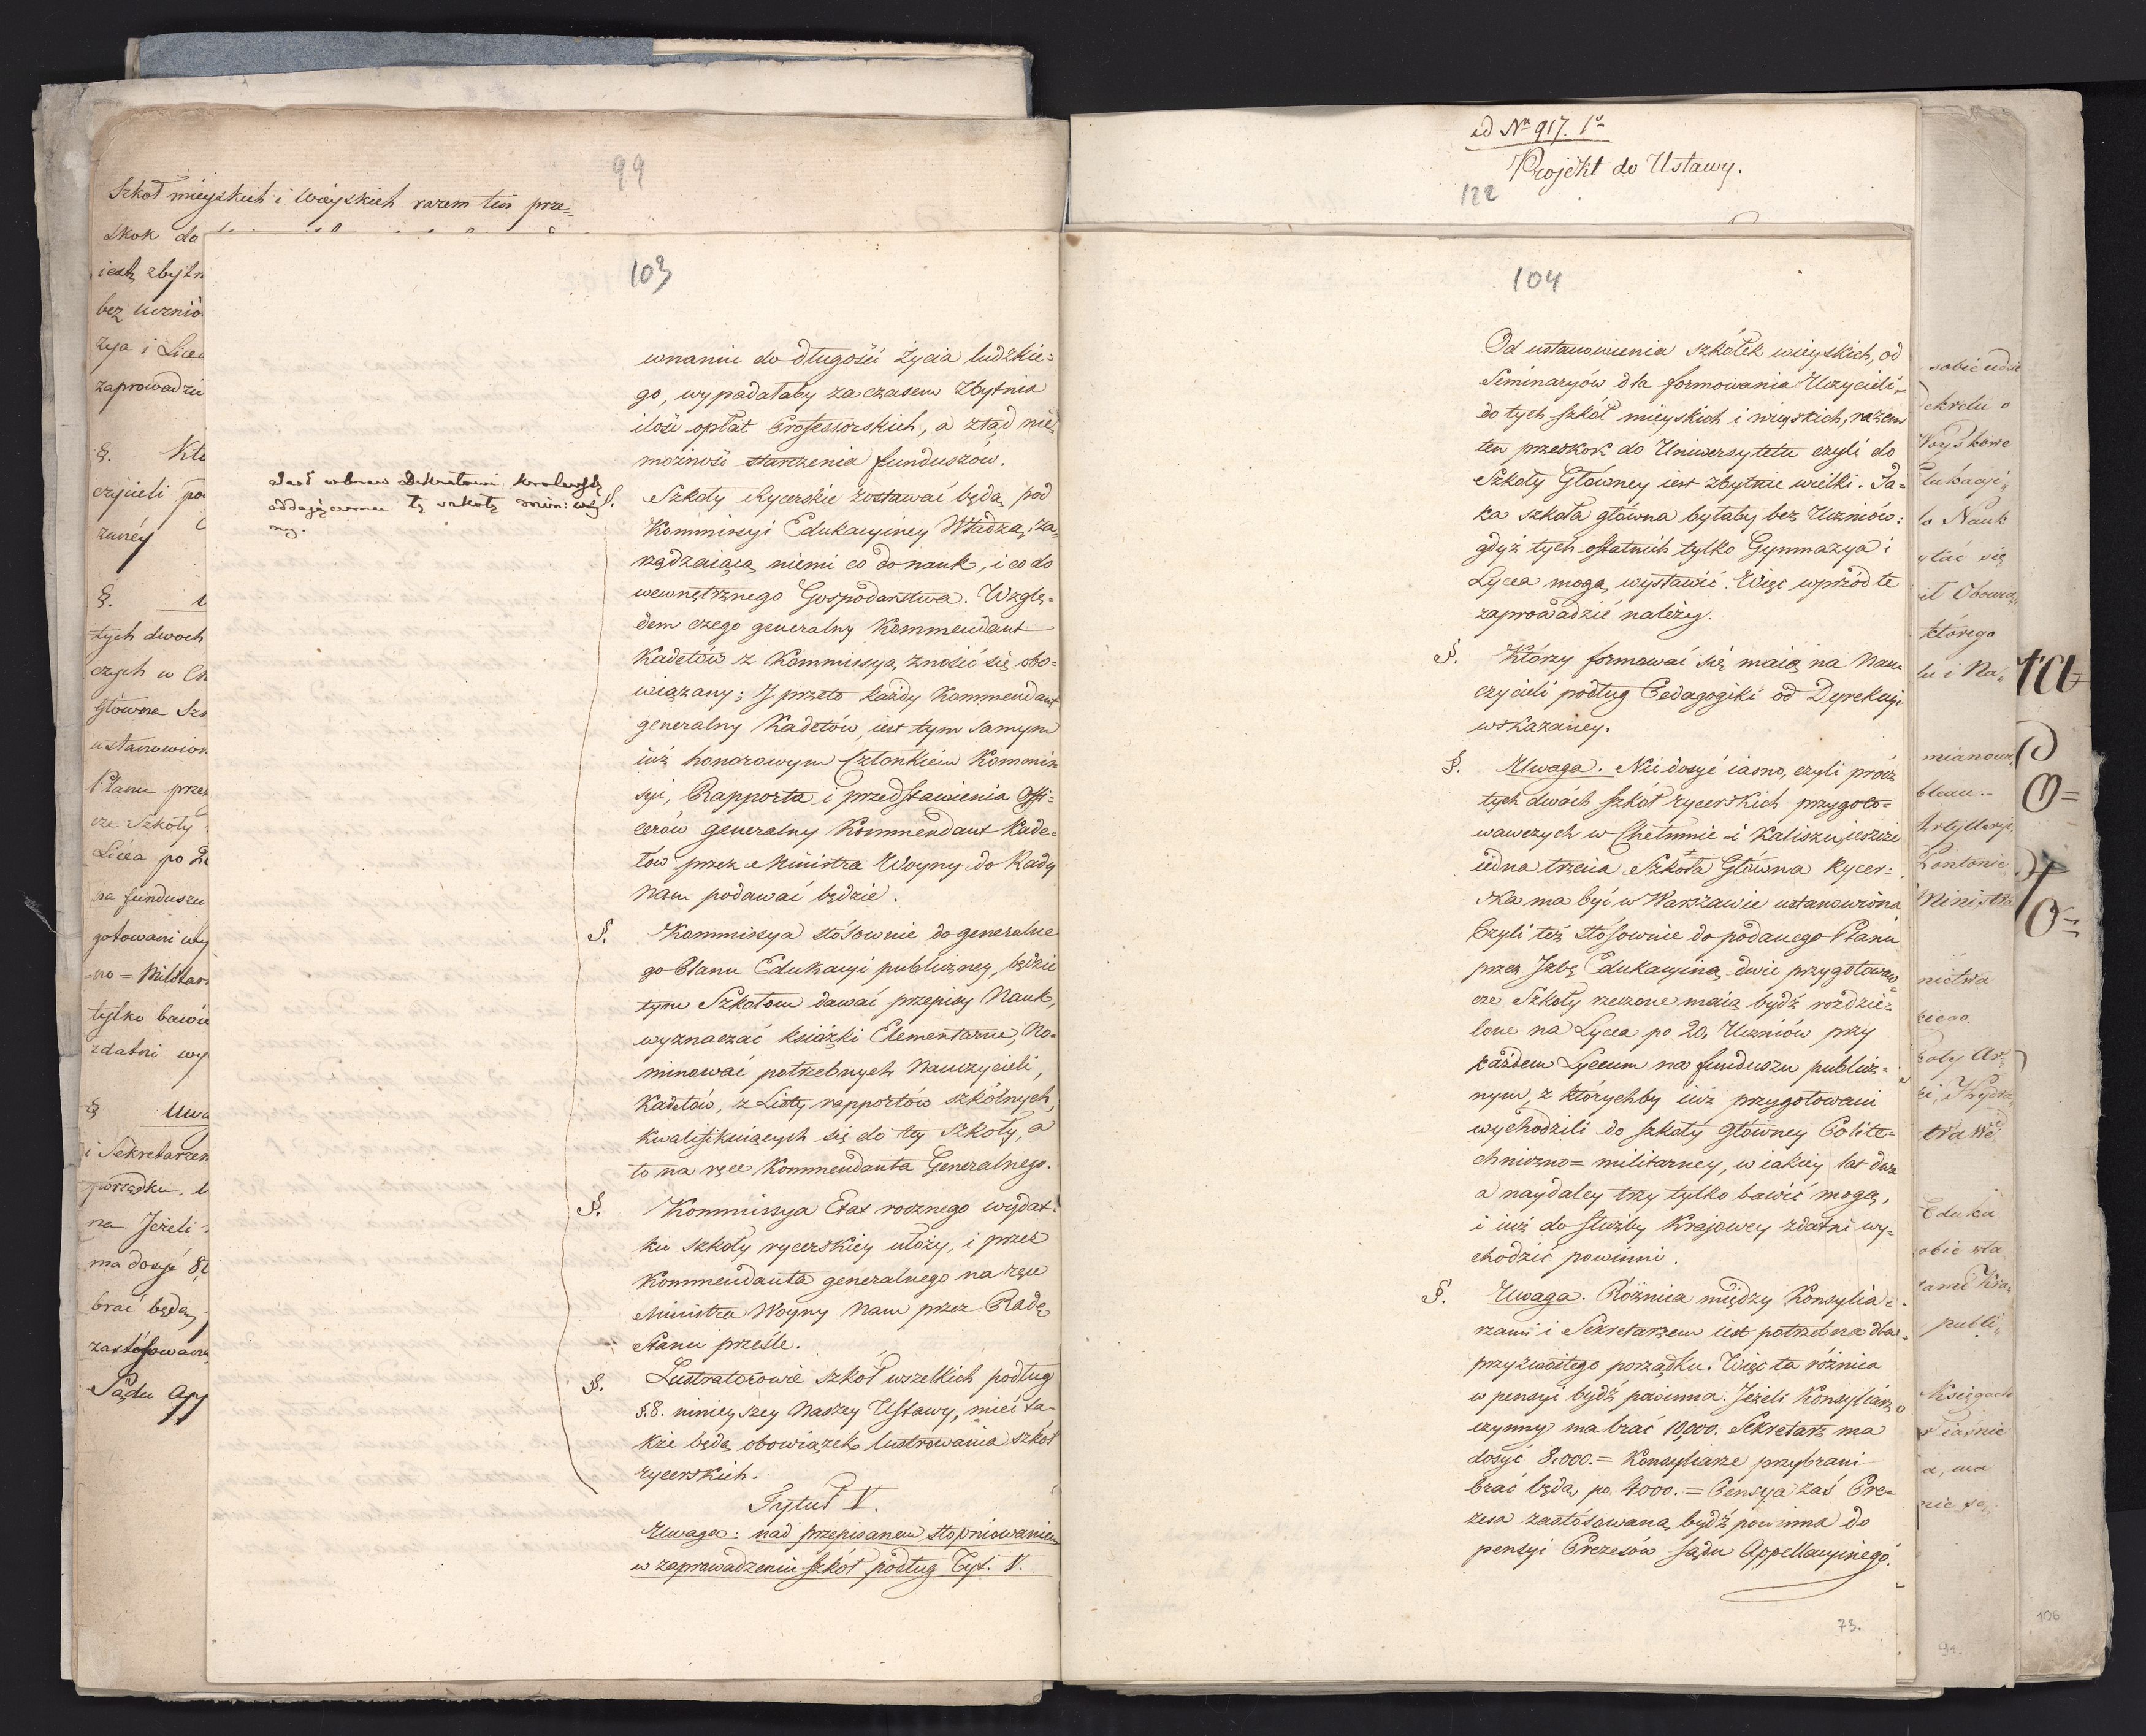 99
Szkoł mieyskich i wieyskich razem ten prze=
skok do
iest zbytn
bez uczniów
zya i Lice
zaprowadzić
§. Któ
czycieli po
zaney
§.
tych dwoch
czych w Ch
Główna Szk
ustanowion
Planu przez
cze Szkoły
Licea po 20
na funduszu
gotowani wy
no=Militar
tylko bawić
zdatni wy
§ Uwa
i Sekretarzem
porządku.
na Jeżeli
ma dosyć 8,
brać będą,
zastósowana
Sądu App
103
Jest wbrew Dekretowi królewsk.
oddającemu tę szkołę min: woy
ny.
wnaniu do długości życia ludzkie=
go, wypadałaby za czasem zbytnia
ilość opłat Professorskich, a ztąd nie=
możność starczenia funduszów.
§. Szkoły Rycerskie zostawać będą pod
Kommissyi Edukacyiney Władzą, za=
rządzaiącą niemi co do nauk, i co do
wewnętrznego Gospodarstwa. Wzglę=
dem czego generalny Kommendant
Kadetów z Kommissyą znosić się obo=
wiązany; I przeto każdy Kommendant
generalny Kadetów, iest tym samym
iuż honorowym Członkiem Kommis
syi, Rapporta i przedstawienia Offi=
cerów generalny Kommendant Kade=
tów przez Ministra Woyny do Rady
Nam podawać będzie.
§. Kommissya stósownie do generalne
go Planu Edukacyi publiczney, będzie
tym Szkołom dawać przepisy Nauk,
wyznaczać książki Elementarne, No=
minować potrzebnych Nauczycieli,
Kadetów, z Listy rapportów szkólnych,
kwalifikuiących się do tey szkoły, a
to na ręce Kommendanta Generalnego.
§. Kommissya Etat rocznego wydat=
ku szkoły rycerskiey ułoży, i przez
Kommendanta generalnego na ręce
Ministra Woyny Nam przez Radę
Stanu prześle.
§. Lustratorowie szkół wszelkich podług
§.8. ninieyszey Naszey Ustawy, mieć ta=
kże będą obowiązek lustrowania szkół
rycerskich.
Tytuł V.
Uwaga: nad przepisanem stopniowaniem
w zaprowadzeniu szkół podług Tyt. V.
ad Nr 917. 1o
Projekt do Ustawy.
122
104
Od ustanowienia szkółek wieyskich, od
Seminaryów dla formowania Uczycieli=
do tych szkół mieyskich i wieyskich, razem
ten przeskok do Uniwersytetu czyli do
Szkoły Główney iest zbytnie wielki. Ta=
ka szkoła główna byłaby bez Uczniów:
gdyż tych ostatnich tylko Gymnazya i
Lycea mogą wystawić. Więc wprzód te
zaprowadzić należy.
§. Którzy formować się maią na Nau
czycieli podług Pedagogiki od Dyrekcyi
wskazaney.
§. Uwaga. Nie dosyć iasno, czyli prócz
tych dwóch szkół rycerskich przygoto=
wawczych w Chełmnie i Kaliszu, ieszcze
iedna trzecia Szkoła Główna Rycer=
ska ma być w Warszawie ustanowiona
Czyli też stósownie do podanego Planu
przez Izbę Edukacyiną dwie przygotowaw=
cze Szkoły rzeczone maią bydź rozdzie=
lone na Lycea po 20. Uczniów przy
każdem Lyceum na funduszu publicz=
nym, z którychby iuż przygotowani
wychodzili do szkoły główney Polite=
chniczno=militarney, w iakiey lat dwa
a naydaley trzy tylko bawić mogą,
i iuż do służby Krajowey zdatni wy=
chodzić powinni.
§. Uwaga. Różnica między Konsylia=
rzami i Sekretarzem iest potrzebna dla
przyzwoitego porządku. Więc ta różnica
w pensyi bydź powinna. Jeżeli Konsyliarz
czynny ma brać 10,000. Sekretarz ma
dosyć 8,000.= Konsyliarze przybrani
brać będą po 4000.= Pensya zaś Pre=
zesa zastósowana bydź powinna do
pensyi Prezesów sądu Appellacyinego.
73.
sobie udzie
dekretu o
Woyskowe
to Nauk
ytać się
którego
lu i Na=
mianowi
Artyllerye
Pontonie
Ministra
nictwa
kiego
koły Ar
Eduka
obie wła
publi=
Księgach
nie są
91.
106